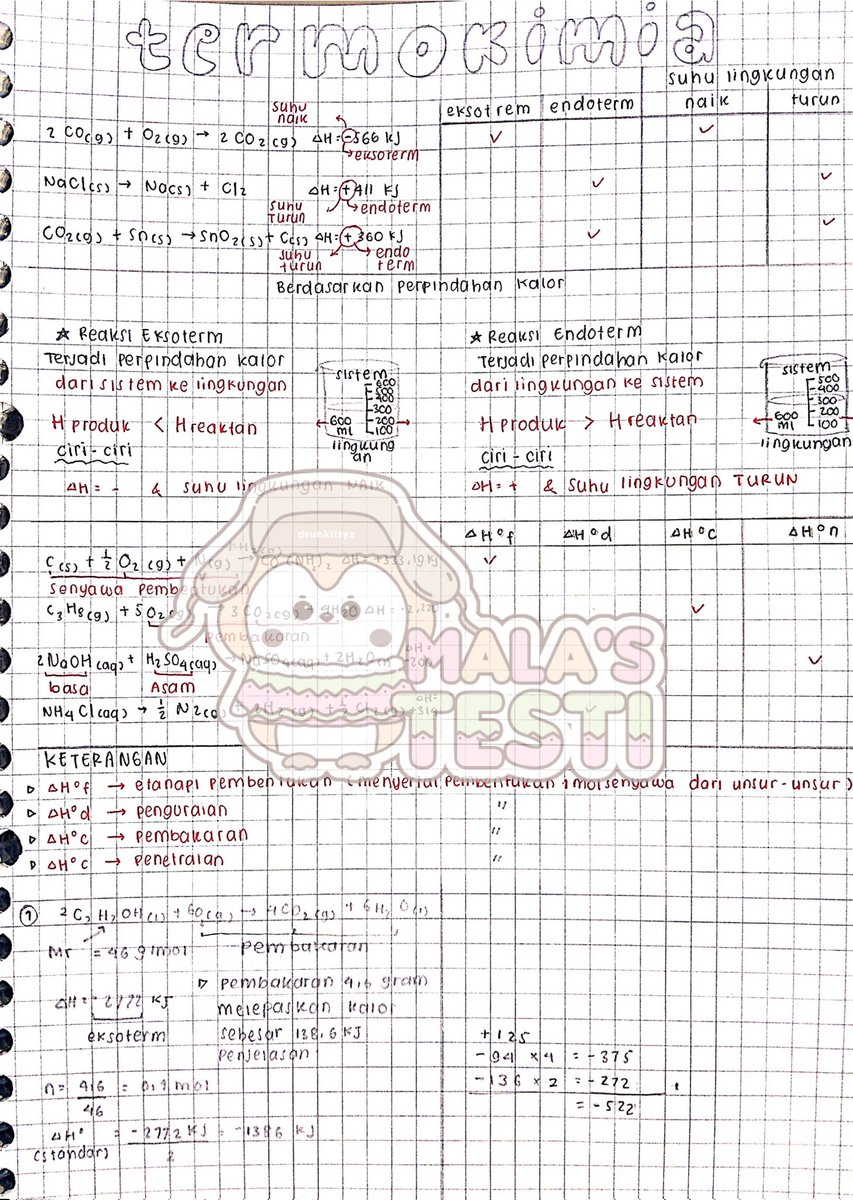 termokimia
suhu lingkungan
eksotrem endoterm naik turun
suhu naik
2 CO(g) + O2(g) → 2 CO2(g) ΔH = -566 KJ
→ eksoterm
NaCl(s) → Na(s) + Cl2 ΔH = +411 KJ
suhu turun → endoterm
CO2(g) + Sn(s) → SnO2(s) + C(s) ΔH = +360 KJ
suhu turun endo term
Berdasarkan perpindahan kalor
☆ Reaksi Eksoterm
Terjadi perpindahan kalor
dari sistem ke lingkungan
H produk < H reaktan
ciri-ciri
ΔH = - & suhu lingkungan NAIK
sistem
600
500
400
300
200
100
600 ml
lingkungan
☆ Reaksi Endoterm
Terjadi perpindahan kalor
dari lingkungan ke sistem
H produk > H reaktan
ciri-ciri
ΔH = + & suhu lingkungan TURUN
sistem
500
400
300
200
100
600 ml
lingkungan
ΔH°f ΔH°d ΔH°c ΔH°n
C(s) + ½ O2(g) + N(g) ΔH = +333,19 KJ
senyawa pembentukan
C3H8(g) + 5O2(g) → 3 CO2(g) + 4H2O ΔH = -2,220
pembakaran
2NaOH(aq) + H2SO4(aq) → NaSO4(aq) + 2H2O ΔH = -200
basa Asam
NH4Cl(aq) → ½ N2(g) + 2 H2(g) + ½ Cl2(g) ΔH = +314
drunkittyz
MALA'S
TESTI
KETERANGAN
▷ ΔH°f → etanapi pembentukan (menyertai pembentukan 1 mol senyawa dari unsur-unsur)
▷ ΔH°d → penguraian "
▷ ΔH°c → pembakaran "
▷ ΔH°c → penetralan "
① 2 C2H2OH(l) + 6O2(g) → 4CO2(g) + 6H2O(l)
Mr = 46 g/mol pembakaran
▷ pembakaran 4,6 gram
ΔH = -2772 KJ melepaskan kalor
eksoterm sebesar 138,6 KJ
penjelasan
n = 4,6 = 0,1 mol
46
ΔH° = -2772 KJ = -1386 KJ
(standar) 2
+125
-94 x 4 = -375
-136 x 2 = -272
= -522